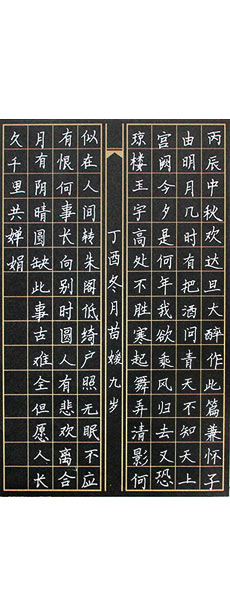 丙辰中秋欢达旦大醉作此篇兼怀子
由明月几时有把酒问青天不知天上
宫阙今夕是何年我欲乘风归去又恐
琼楼玉宇高处不胜寒起舞弄清影何
丁酉冬月苗媛九岁
似在人间转朱阁低绮户照无眠不应
有恨何事长向别时圆人有悲欢离合
月有阴晴圆缺此事古难全但愿人长
久千里共婵娟